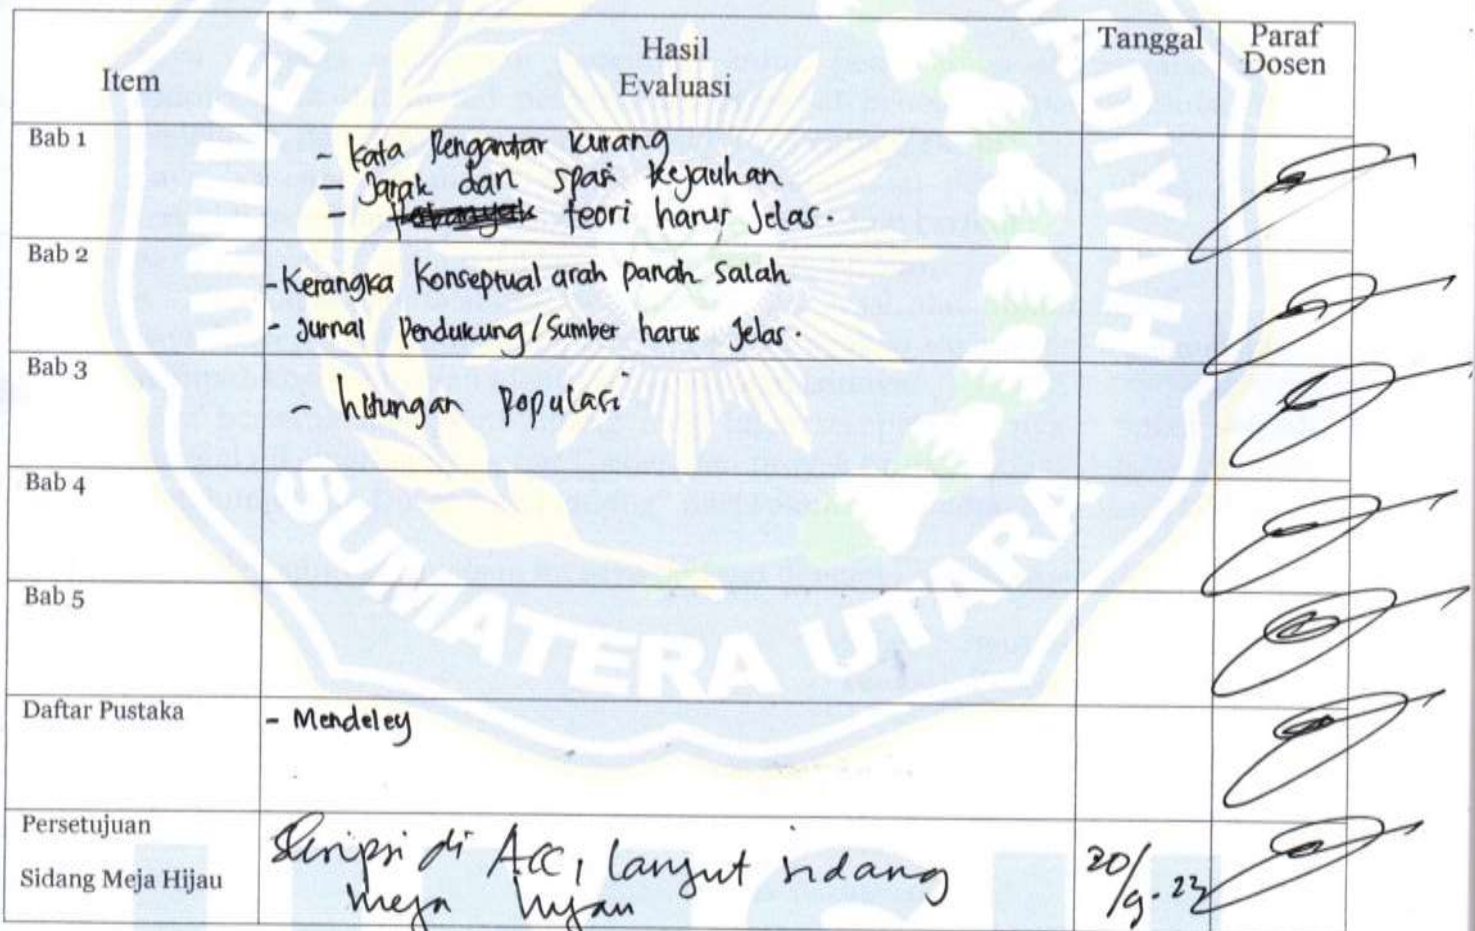 Item
Hasil
Evaluasi
Tanggal
Paraf
Dosen
Bab 1
- Kata Pengantar kurang
- Jarak dan spasi kejauhan
- teori harus Jelas.
Bab 2
- Kerangka Konseptual arah panah salah
- Jurnal Pendukung/Sumber harus Jelas.
Bab 3
- hitungan populasi
Bab 4
Bab 5
Daftar Pustaka
- Mendeley
Persetujuan
Sidang Meja Hijau
Skripsi di ACC, lanjut sidang
meja hijau
20/9-23
SUMATERA UTARA